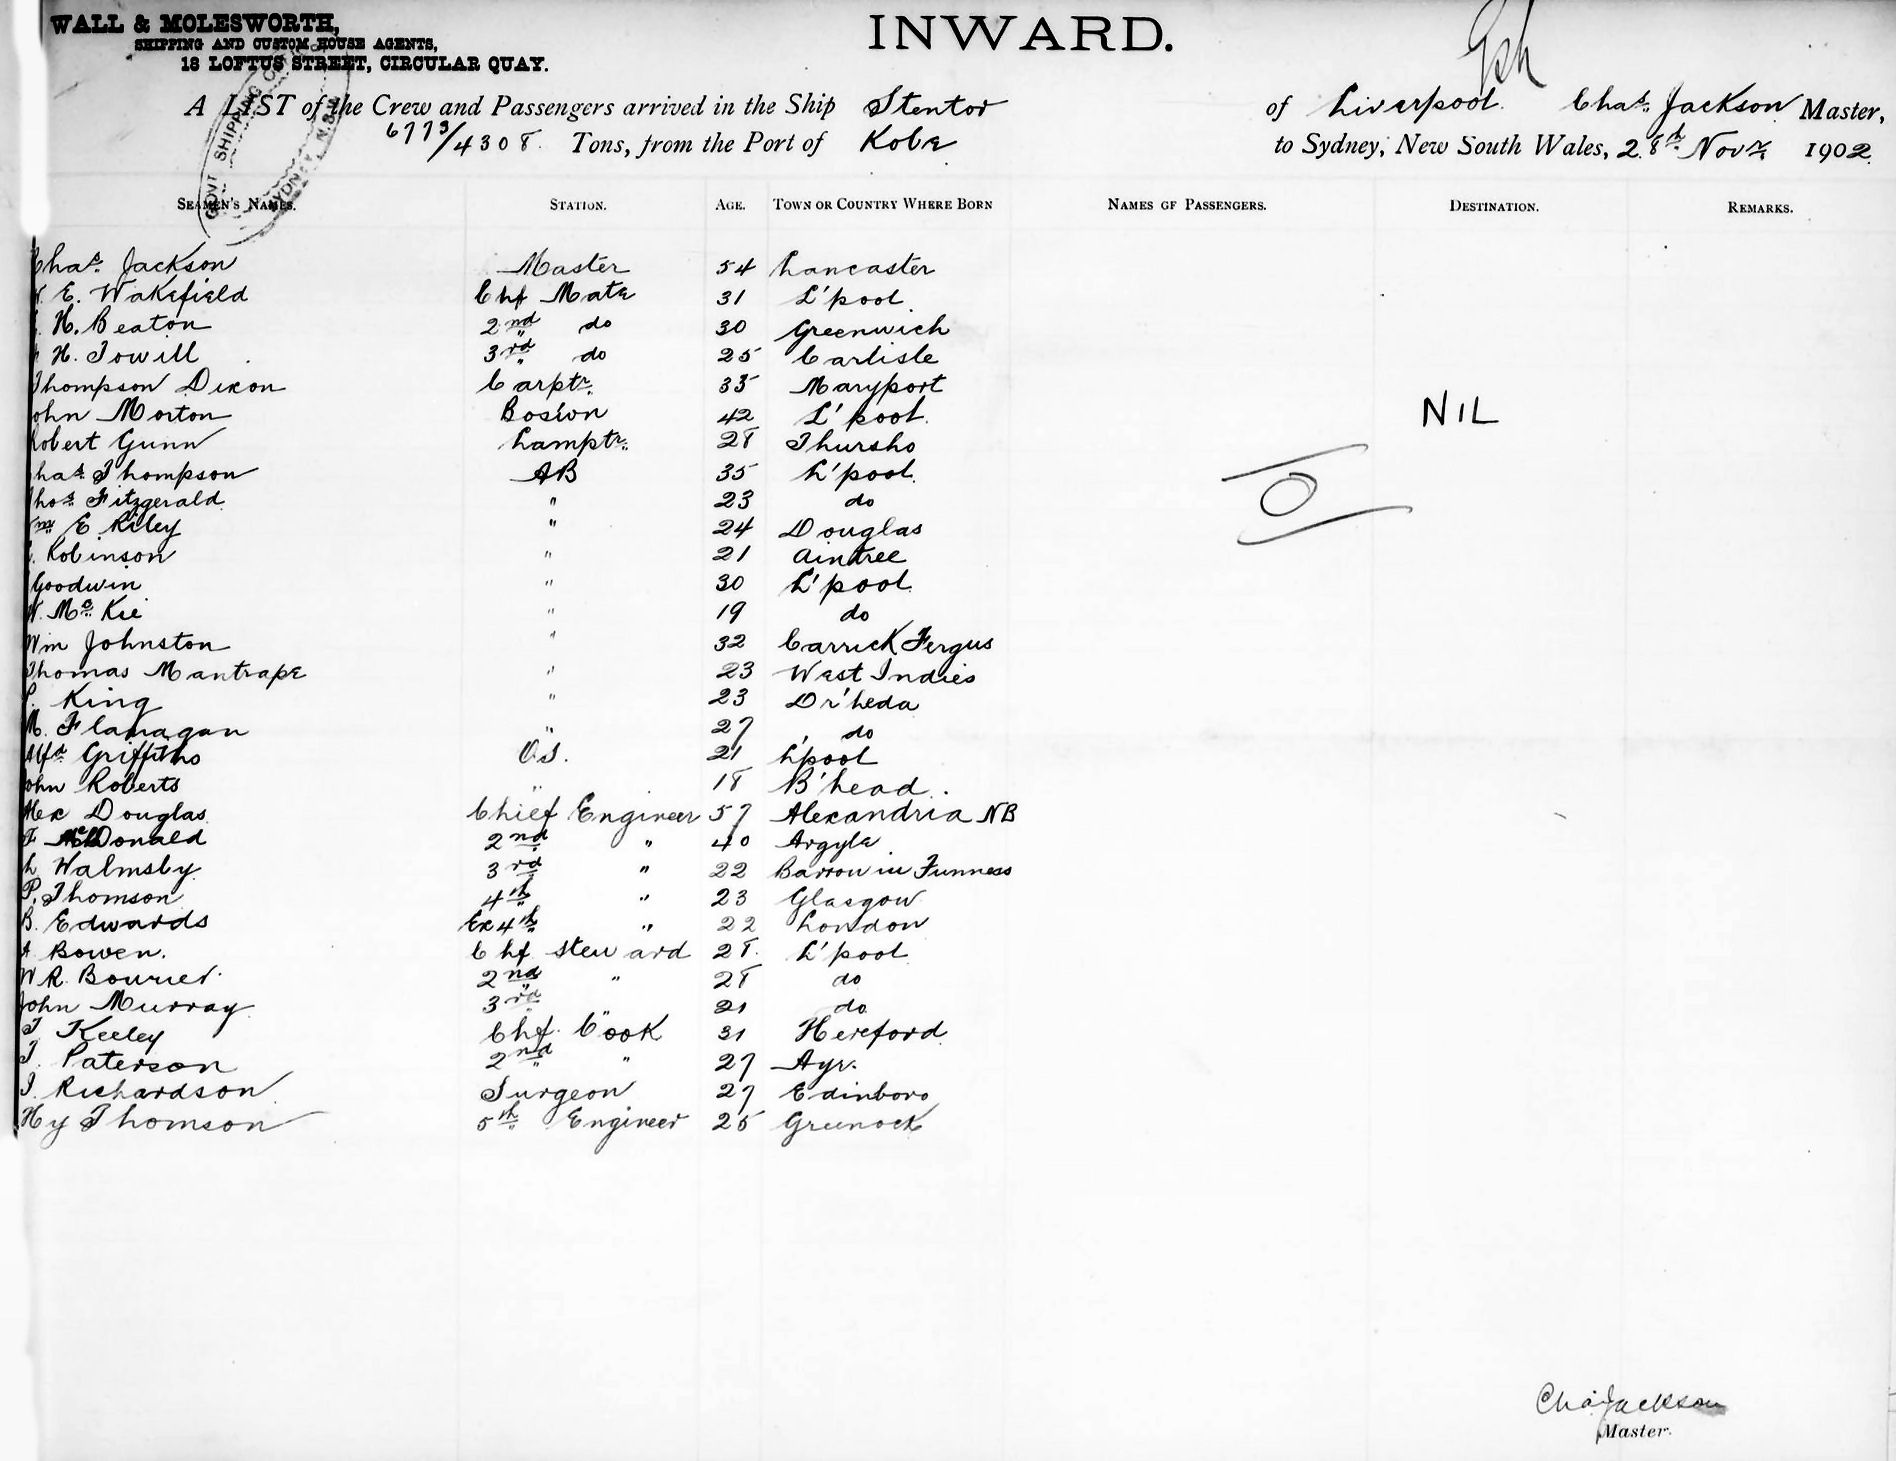 WALL & MOLESWORTH,
SHIPPING AND CUSTOM HOUSE AGENTS,
18 LOFTUS STREET, CIRCULAR QUAY.
INWARD.
A LIST of the Crew and Passengers arrived in the Ship Stentor of Liverpool Chas. Jackson Master,
6773/4308 Tons, from the Port of Kobe to Sydney, New South Wales, 28th Novr. 1902
GOVT SHIPPING
SEAMEN'S NAMES. STATION. AGE. TOWN OR COUNTRY WHERE BORN NAMES OF PASSENGERS. DESTINATION. REMARKS.
Chas. Jackson Master 54 Lancaster
E. Wakefield Chf Mate 31 L'pool
H. Beaton 2nd do 30 Greenwich
H. Towill 3rd do 25 Carlisle
Thompson Dixon Carptr. 35 Maryport
John Morton Bos'wn 42 L'pool
NIL
Robert Gunn Lamptr. 28 Thursho
Chas. Thompson AB 35 L'pool
Thos. Fitzgerald " 23 do
Wm E Riley " 24 Douglas
Robinson " 21 Aintree
Goodwin " 30 L'pool
W. Mc Kie " 19 do
Wm Johnston " 32 Carrick Fergus
Thomas Mantrape " 23 West Indies
King " 23 Dr'heda
M. Flanagan " 27 do
Alfd Griffiths O.S. 21 L'pool
John Roberts " 18 B'head
Alex Douglas Chief Engineer 57 Alexandria NB
F McDonald 2nd " 40 Argyle
L Walmsby 3rd " 22 Barrow in Furness
P. Thomson 4th " 23 Glasgow
B. Edwards Ex 4th " 22 London
A Bowen. Chf steward 28 L'pool
W R. 2nd " 28 do
John Murray 3rd " 21 do
T Keeley Chf. Cook 31 Hereford
T. Paterson 2nd " 27 Ayr.
J. Richardson Surgeon 27 Edinboro
Hy Thomson 5th Engineer 25 Greenock
Chas Jackson
Master.